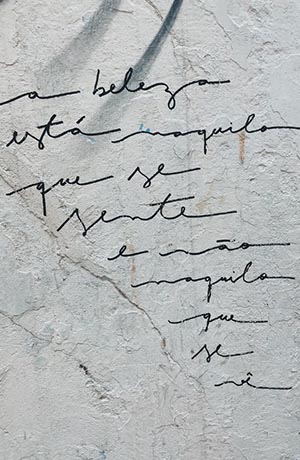 a beleza
está naquilo
que se
sente
e não
naquilo
que
se
vê